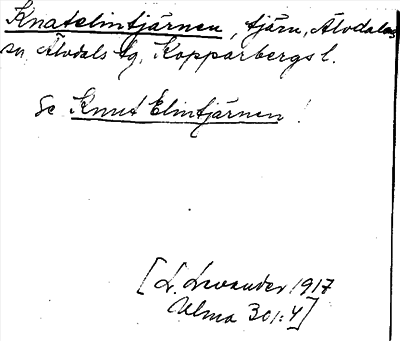 Knatelintjärnen, tjärn, Älvdalens
sn, Älvdals tg, Kopparbergs l.
Se Knut Elintjärnen!
[L. Levander 1917
Ulma 301:4]